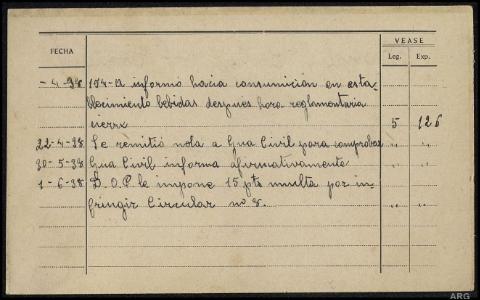 VEASE
FECHA Leg. Exp.
- 4-38 174-A informó hacía consumición en esta-
blecimiento bebidas despues hora reglamentaria
cierre 5 126
22-4-38 Se remitió nota a Gua Civil para comprobar " "
30-5-38 Gua Civil informa afirmativamente " "
1-6-38 D.O.P. le impone 15 pts multa por in-
fringir Circular nº 8. " "
ARG